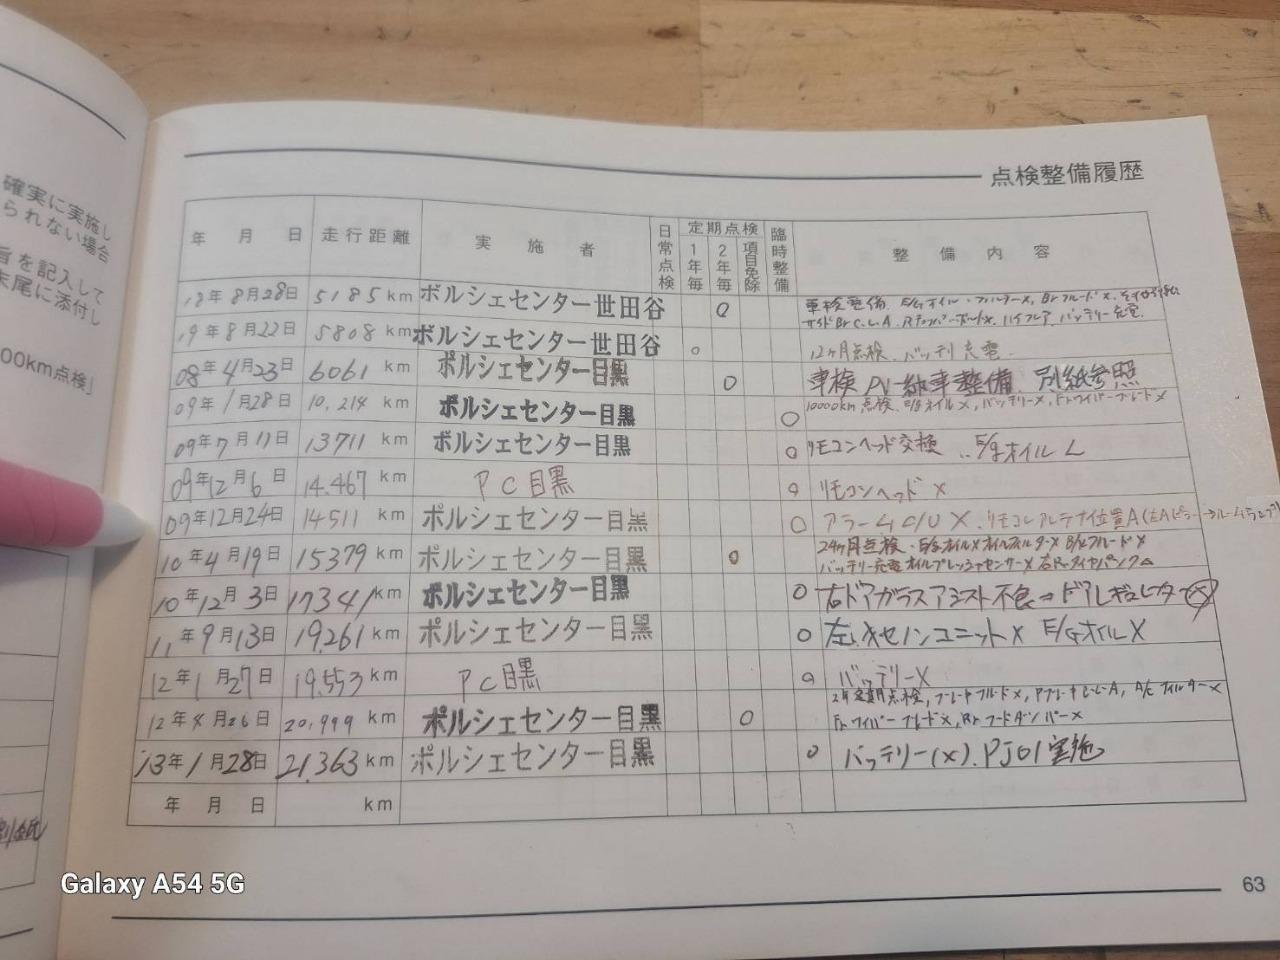 確実に実施し
られない場合
旨を記入して
末尾に添付し
00km点検」
点検整備履歴
年 月 日 走行距離 実施者 日常点検 定期点検 1年毎 2年毎 項目免除 臨時整備 整備内容
18年8月28日 5185km ポルシェセンター世田谷 ○ 車検整備
19年8月22日 5808km ポルシェセンター世田谷 ○ 12ヶ月点検、バッテリ充電
08年4月23日 6061km ポルシェセンター目黒 ○ 車検 納車整備 別紙参照
09年1月28日 10,214km ポルシェセンター目黒 ○ 10000km点検、E/gオイル×、バッテリー×、Frワイパーブレード×
09年7月11日 13711km ポルシェセンター目黒 ○ リモコンヘッド交換 E/gオイルL
09年12月6日 14.467km PC目黒 ○ リモコンヘッド×
09年12月24日 14511km ポルシェセンター目黒 ○ アラームC/U×、リモコンアンテナ位置A
10年4月19日 15379km ポルシェセンター目黒 ○ 24ヶ月点検・E/gオイル×オイルフィルター×B/kフルード×
バッテリー充電 オイルプレッシャセンサー× 右Rrタイヤパンク△
10年12月3日 17341km ポルシェセンター目黒 ○ 右ドアガラスアシスト不良→ドアレギュレター
11年9月13日 19,261km ポルシェセンター目黒 ○ 左、キセノンユニット× E/Gオイル×
12年1月27日 19.553km PC目黒 ○ バッテリー×
12年4月26日 20,999km ポルシェセンター目黒 ○ 2年定期点検、ブレーキフルード×、
Frワイパーブレード×、Frフードダンパー×
13年1月28日 21,363km ポルシェセンター目黒 ○ バッテリー(×)、PJ01実施
年 月 日 km
Galaxy A54 5G
63